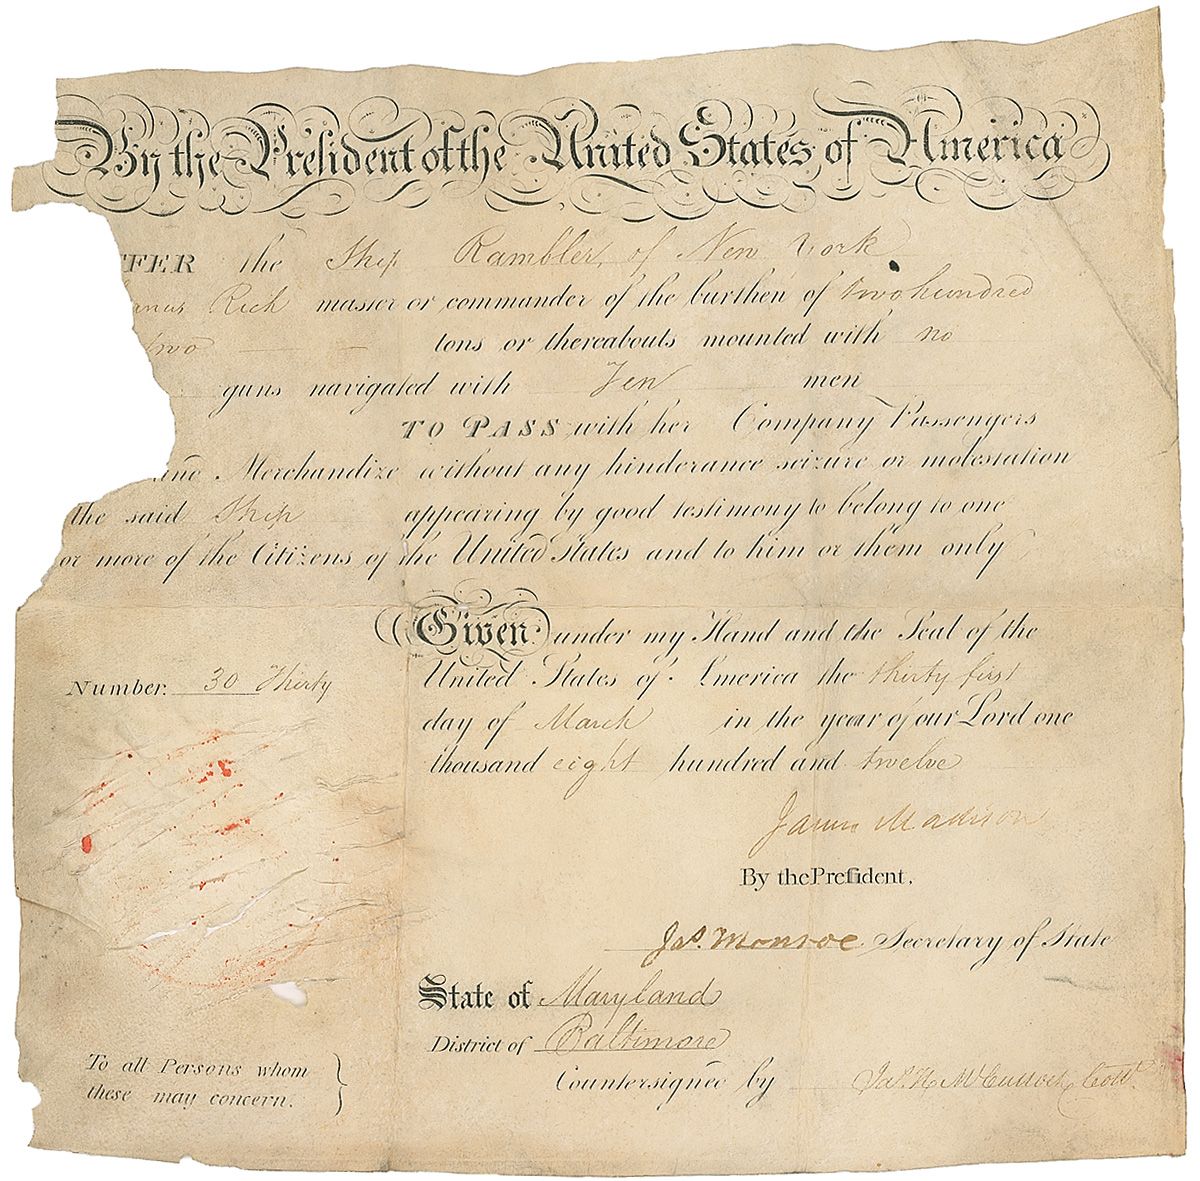 By the President of the United States of America
FFER the Ship Rambler, of New York
Rich master or commander of the burthen of two hundred
two tons or thereabouts mounted with no
guns navigated with Ten men
TO PASS with her Company Passengers
Merchandize without any hinderance seizure or molestation
the said Ship appearing by good testimony to belong to one
or more of the Citizens of the United States and to him or them only
Given under my Hand and the Seal of the
United States of America the thirty first
day of March in the year of our Lord one
thousand eight hundred and twelve
Number. 30 Thirty
James Madison
By the President,
Jas. Monroe Secretary of State
State of Maryland
District of Baltimore
Countersigned by Jas. H. McCulloch, Collr.
To all Persons whom
these may concern.